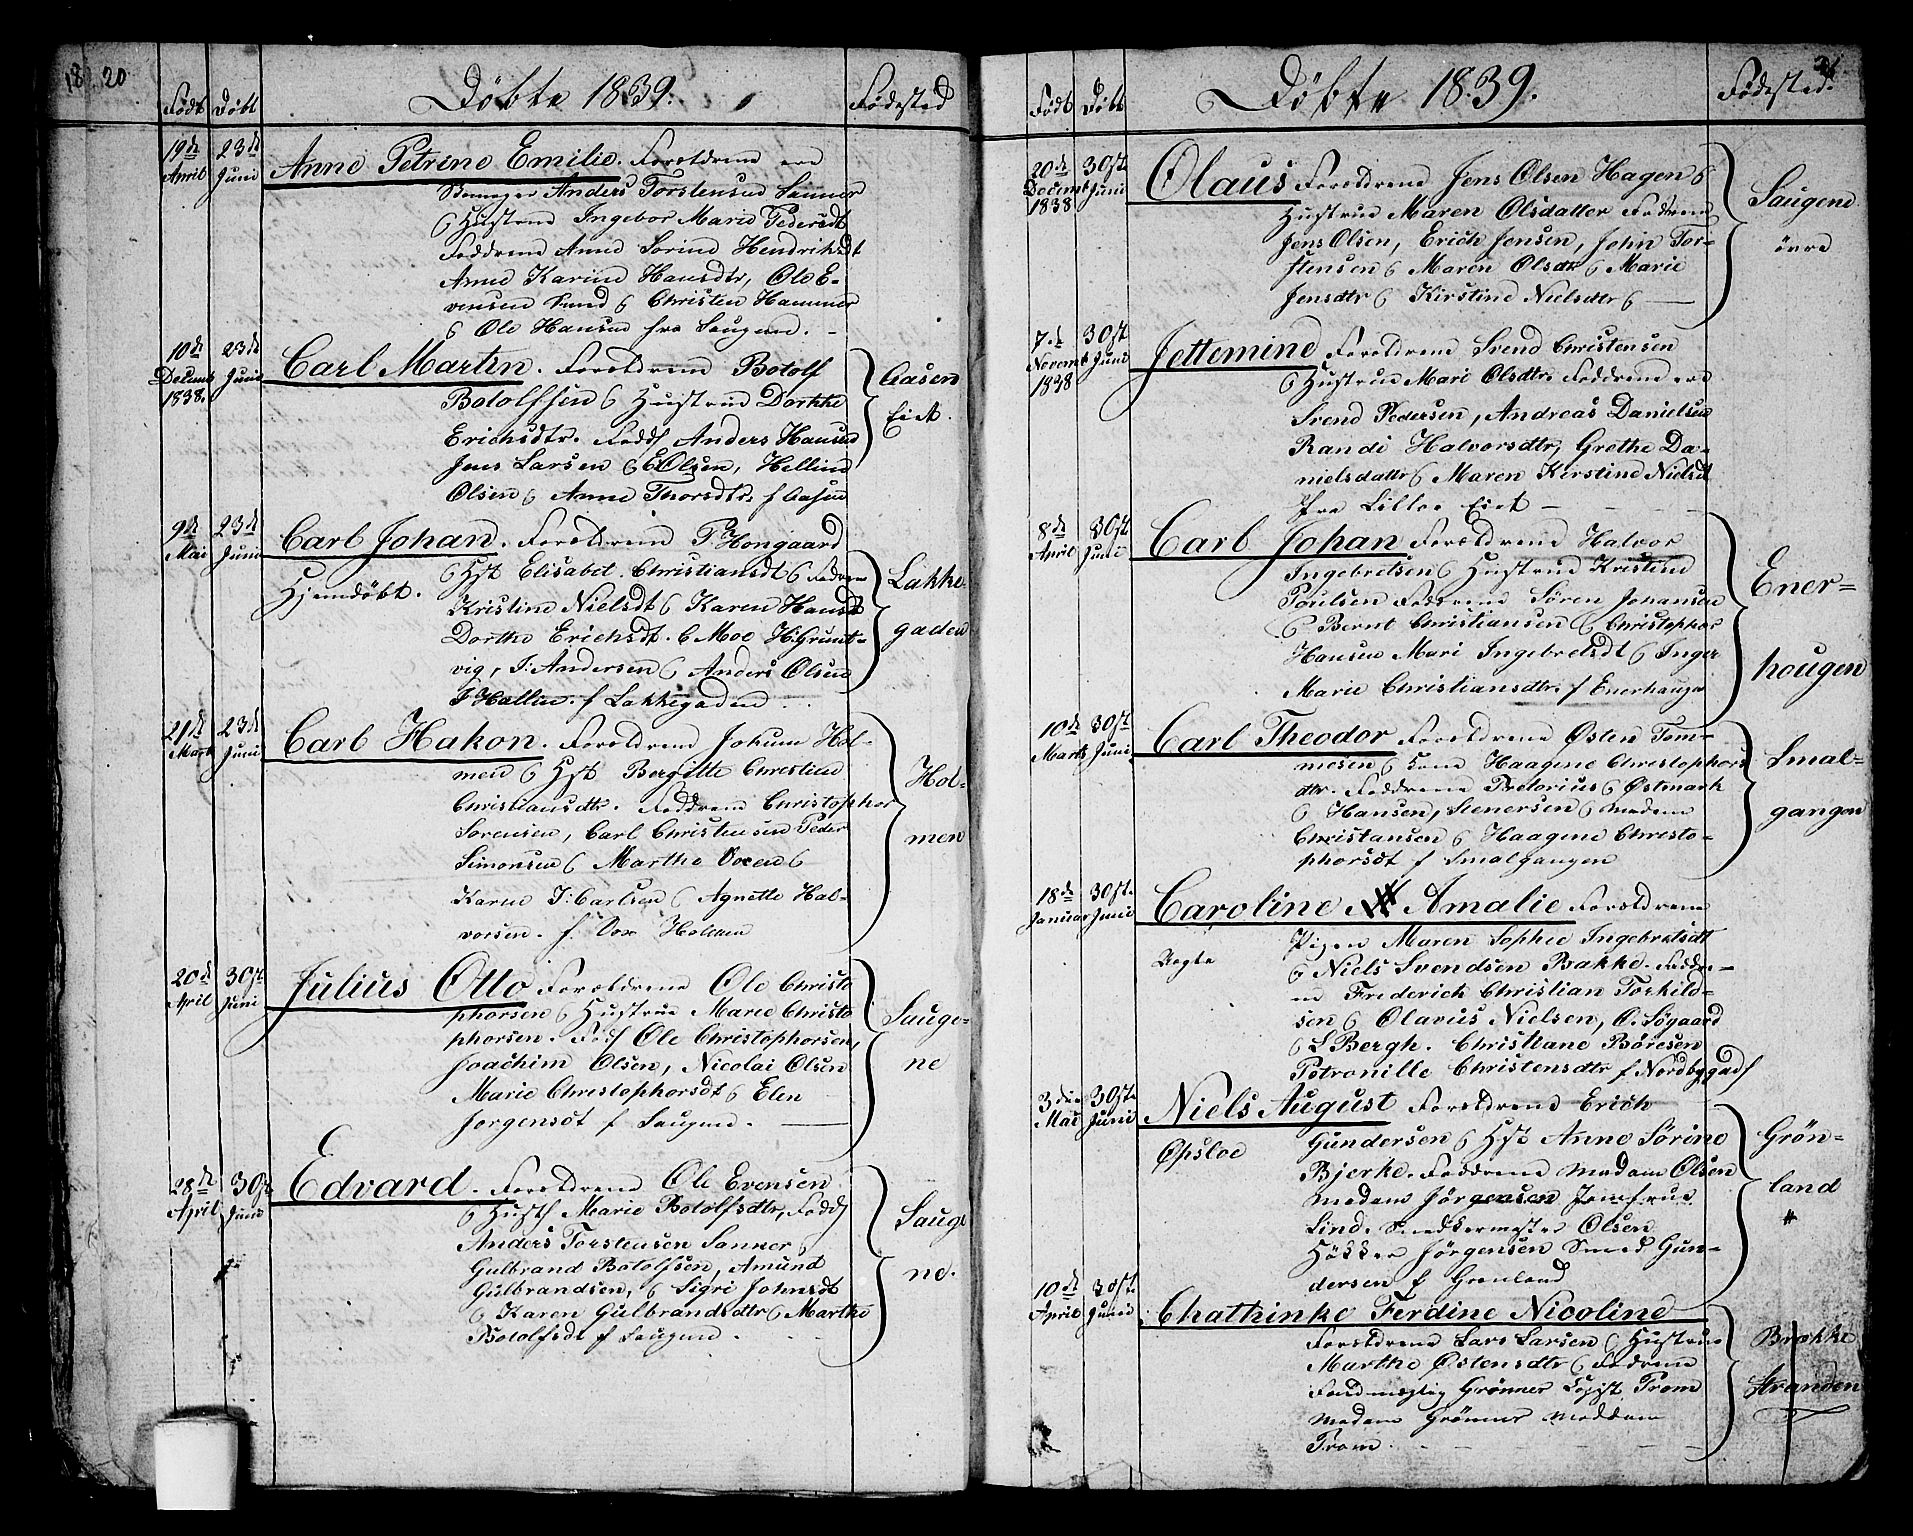 18 20
Født Døbt Døbte 1839. Fødested
19de April 23de Juni Anne Petrine Emilie. Forældrene ere
Anders Torstensen Sanner
6 Hustrue Ingebor Marie Pedersdt
Faddrene Anne Sorine Hendrichsdt
Anne Karine Hansdtr, Ole E-
vensen Christen Hammer
6 Ole Hansen fra Saugene. -
10de Decemb 1838. 23de Juni Carl Martin. Forældrene Botolf
Botolfsen 6 Hustrue Dorthe
Erichsdtr. Fadd Anders Hansen
Jens Larsen 6 E Olsen, Helline
Olsen 6 Anne Thorsdtr. f Aasen
Aasen
Eiet.
9de Mai 23de Juni Carl Johan. Forældrene P. Hongaard
Hjemdøbt. 6 Hst Elisabet Christiansdt 6 Fadrene
Kristine Nielsdt 6 Karen Hansdt
Dorthe Erichsdt. 6 Moe H: Grunt-
vig, J: Andersen 6 Anders Olsen
J Hallin. f Lakkegaden
Lakke
gaden
21de Marts 23de Juni Carl Hakon. Forældrene Johan Hol-
men 6 Hst Bergitte Christine
Christiansdtr. Faddrene Christophor
Sorensen, Carl Christensen Peder
Simonsen 6 Marthe 6
Karen J: Carlsen 6 Agnette Hal-
vorsen. f. Holmen
Hol-
men
20de April 30te Juni Julius Otto Forældrene Ole Christo
phorsen 6 Hustrue Marie Christo
phorsen. Fad Ole Christophorsen,
Joachim Olsen, Nicolai Olsen
Marie Christophorsdt 6 Elen
Jørgensdt f Saugene.
Sauge-
ne
28de April 30te Juni Edvard. Forældrene Ole Evensen
6 Hust Marie Botolfsdtr, Fadd
Anders Torstensen Sanner 6
Gulbrand Botolfsen, Amund
Gulbrandsen, 6 Sigri Johnsdt
6 Karen Gulbrandsdtr 6 Marthe
Botolfsdt f Saugene.
Sauge
ne.
21.
Født Døbt Døbte 1839. Fødested.
20de Decemb 1838 30te Juni Olaus Forældrene Jens Olsen Hagen 6
Hustrue Maren Olsdatter Fadrene
Jens Olsen, Erich Jensen, John Tor-
stensen 6 Maren Olsdtr 6 Marie
Jensdtr 6 Kirstine Nielsdtr 6
Saugene
øvre
7de Novemb 1838 30te Juni Jettemine Forældrene Svend Christensen
6 Hustrue Mari Olsdtr. Faddrene ere
Svend Pedersen, Andreas Danielsen
Randi Halvorsdtr, Grethe Da-
nielsdatter 6 Maren Kirstine Nielsdt
fra Lilloe Eiet
8de April 30te Juni Carl Johan Forældrene Halvor
Ingebretsen 6 Hustrue Kristine
Poulsen Faddrene Søren Johansen
6 Bernt Christiansen 6 Christophor
Hansen Mari Ingebretsdt 6 Inger
Marie Christiansdtr. f Enerhaugen
Ener-
hougen
10de Marts 30te Juni Carl Theodor Forældrene Østen Tom-
mesen 6 Kone Haagine Christophors
dtr. Faddrene Pretorius 6 Østmark
6 Hansen, Stenersen 6 Madame
Christansen 6 Haagine Christo-
phorsdt f Smalgangen
Smal-
gangen
18de Januar 30te Juni Caroline Amalie Forældrene
Uegte Pigen Maren Sophie Ingebretsdt
6 Niels Svendsen Bakke. Faddre-
ne Frederich Christian Torkild-
sen 6 Olavus Nielsen, O. Søgaard
6 L Bergh. Christiane Børesen
Petronille Christensdtr f Nordbygad
3die Mai 30te Juni Niels August Forældrene Erich
Opsloe Gundersen 6 Hst Anne Sørine
Bjerke. Faddrene Madam Olsen
Madame Jørgensen Jomfrue
Lind. Snedkermester Olsen
Høkker Jørgensen Smed Gun-
dersen f Grønland
Grøn-
land
10de April 30te Juni Chathinke Ferdine Nicoline
Forældrene Lars Larsen 6 Hustrue
Marthe Østensdtr 6 Fadrene
Grønner Trom
Madame Grønner Maddam
Trom.
Brække
Stranden